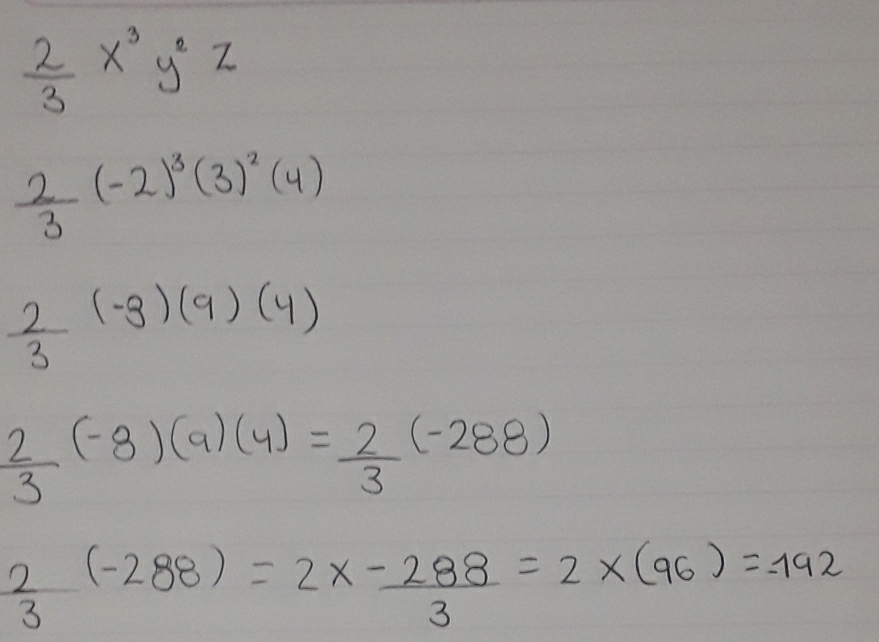 2/3 x³ y² z
2/3 (-2)³ (3)² (4)
2/3 (-8)(9)(4)
2/3 (-8)(9)(4) = 2/3 (-288)
2/3 (-288) = 2 x - 288/3 = 2 x (96) = -192